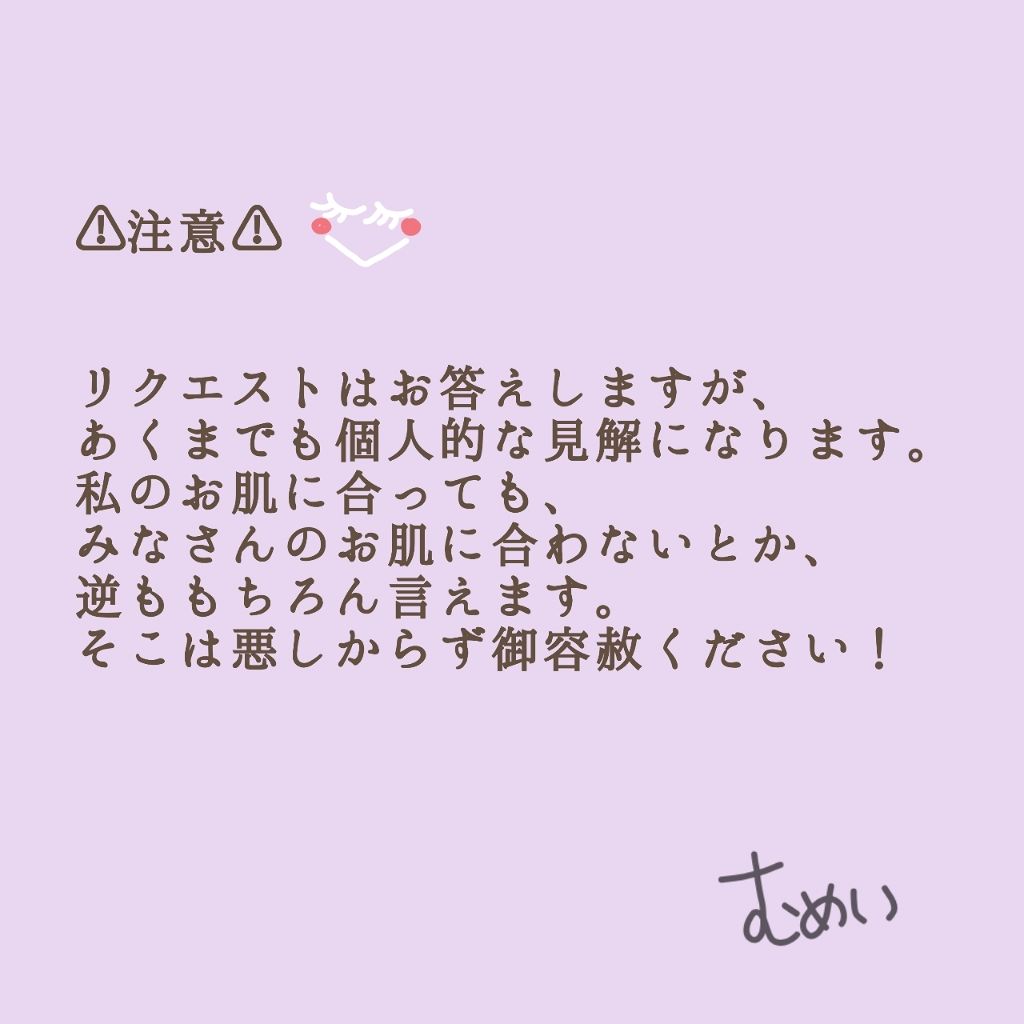 ⚠注意⚠
リクエストはお答えしますが、
あくまでも個人的な見解になります。
私のお肌に合っても、
みなさんのお肌に合わないとか、
逆ももちろん言えます。
そこは悪しからず御容赦ください！
むめい